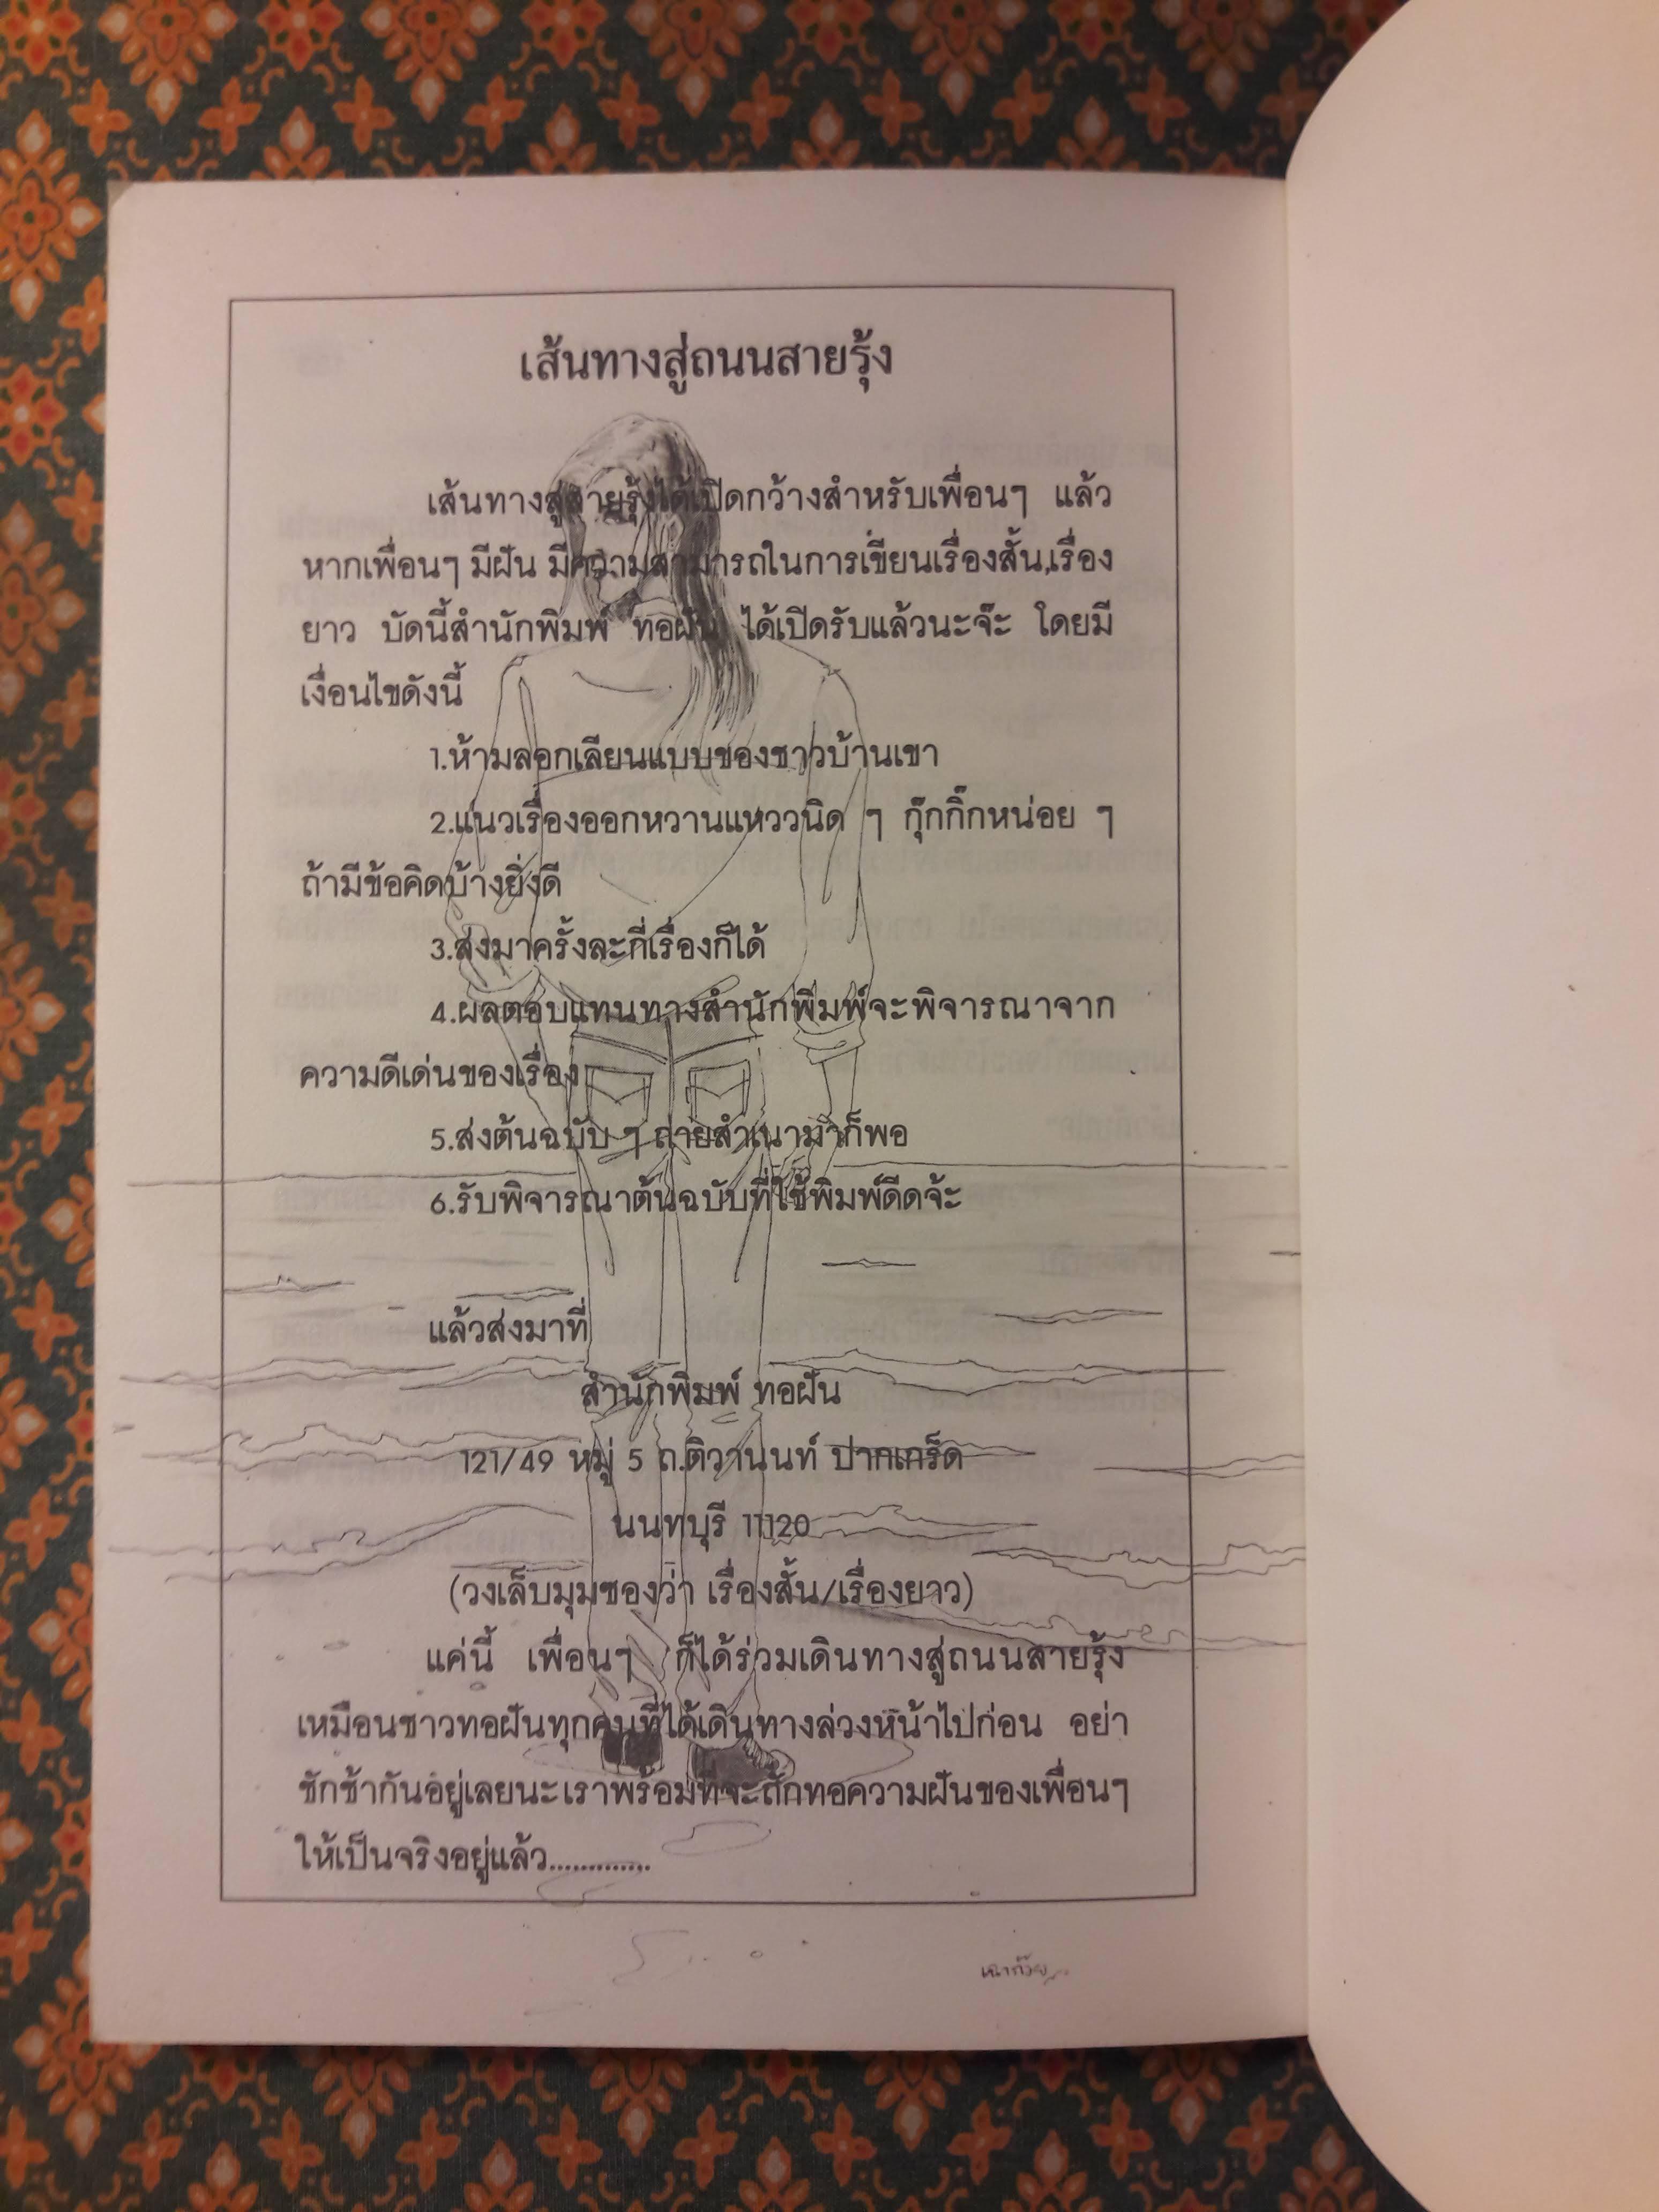 เส้นทางสู่ถนนสายรุ้ง
เส้นทางสู่สายรุ้งได้เปิดกว้างสำหรับเพื่อนๆ แล้ว
หากเพื่อนๆ มีฝัน มีความสามารถในการเขียนเรื่องสั้น,เรื่อง
ยาว บัดนี้สำนักพิมพ์ ทอฝัน ได้เปิดรับแล้วนะจ๊ะ โดยมี
เงื่อนไขดังนี้
1.ห้ามลอกเลียนแบบของชาวบ้านเขา
2.แนวเรื่องออกหวานแหววนิด ๆ กุ๊กกิ๊กหน่อย ๆ
ถ้ามีข้อคิดบ้างยิ่งดี
3.ส่งมาครั้งละกี่เรื่องก็ได้
4.ผลตอบแทนทางสำนักพิมพ์จะพิจารณาจาก
ความดีเด่นของเรื่อง
5.ส่งต้นฉบับ ๆ ถ่ายสำเนามาก็พอ
6.รับพิจารณาต้นฉบับที่ใช้พิมพ์ดีดจ้ะ
แล้วส่งมาที่
สำนักพิมพ์ ทอฝัน
121/49 หมู่ 5 ถ.ติวานนท์ ปากเกร็ด
นนทบุรี 11120
(วงเล็บมุมซองว่า เรื่องสั้น/เรื่องยาว)
แค่นี้ เพื่อนๆ ก็ได้ร่วมเดินทางสู่ถนนสายรุ้ง
เหมือนชาวทอฝันทุกคนที่ได้เดินทางล่วงหน้าไปก่อน อย่า
ชักช้ากันอยู่เลยนะเราพร้อมที่จะถักทอความฝันของเพื่อนๆ
ให้เป็นจริงอยู่แล้ว.............